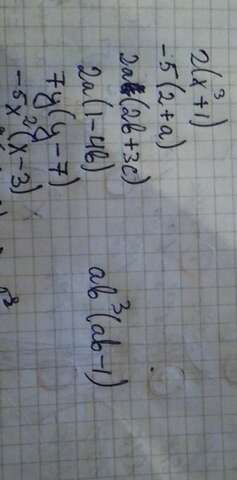 2(x³+1)
-5(2+a)
2a(2b+3c)
2a(1-4b)
7y(y-7)
-5x²(x-3)
ab³(ab-1)